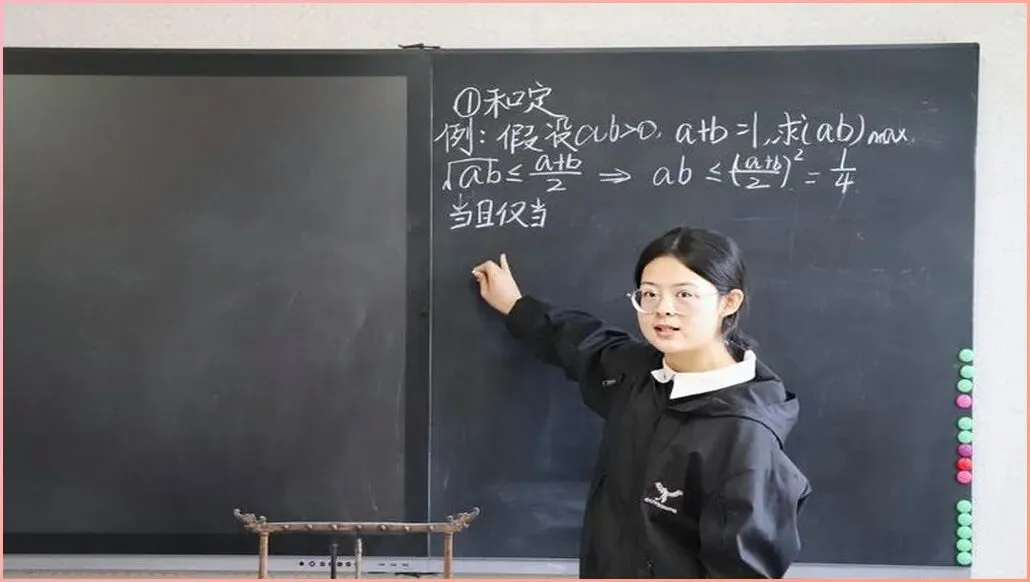 ①和定
例：假设ab>0，a+b=1，求(ab)max
√ab≤(a+b)/2 ⇒ ab≤((a+b)/2)²=1/4
当且仅当